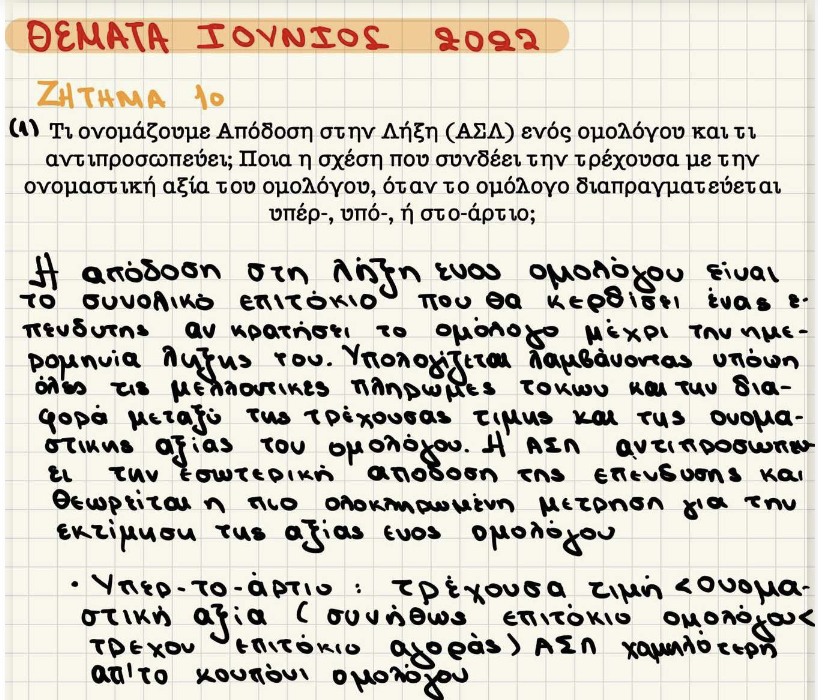 ΘΕΜΑΤΑ ΙΟΥΝΙΟΣ 2022
ΖΗΤΗΜΑ 1ο
(1) Τι ονομάζουμε Απόδοση στην Λήξη (ΑΣΛ) ενός ομολόγου και τι
αντιπροσωπεύει; Ποια η σχέση που συνδέει την τρέχουσα με την
ονομαστική αξία του ομολόγου, όταν το ομόλογο διαπραγματεύεται
υπέρ-, υπό-, ή στο-άρτιο;
Η απόδοση στη λήξη ενος ομολόγου είναι
το συνολικό επιτόκιο που θα κερδίσει ένας ε-
πενδυτης αν κρατήσει το ομόλογο μέχρι την ημε-
ρομηνία ληξης του. Υπολογίζεται λαμβάνοντας υπόψη
όλες τις μελλοντικες πληρωμες τοκων και την δια-
φορά μεταξύ της τρέχουσας τιμης και της ονομα-
στικης αξίας του ομολόγου. Η ΑΣΛ αντιπροσωπευ
ει την εσωτερική απόδοση της επενδυσης και
θεωρείται η πιο ολοκληρωμένη μετρηση για την
εκτίμηση της αξίας ενος ομολόγου
• Υπερ-το-άρτιο : τρέχουσα τιμή < ονομα-
στική αξία ( συνήθως επιτόκιο ομολόγου <
τρεχον επιτόκιο αγοράς) ΑΣΛ χαμηλότερη
απ'το κουπόνι ομολόγου